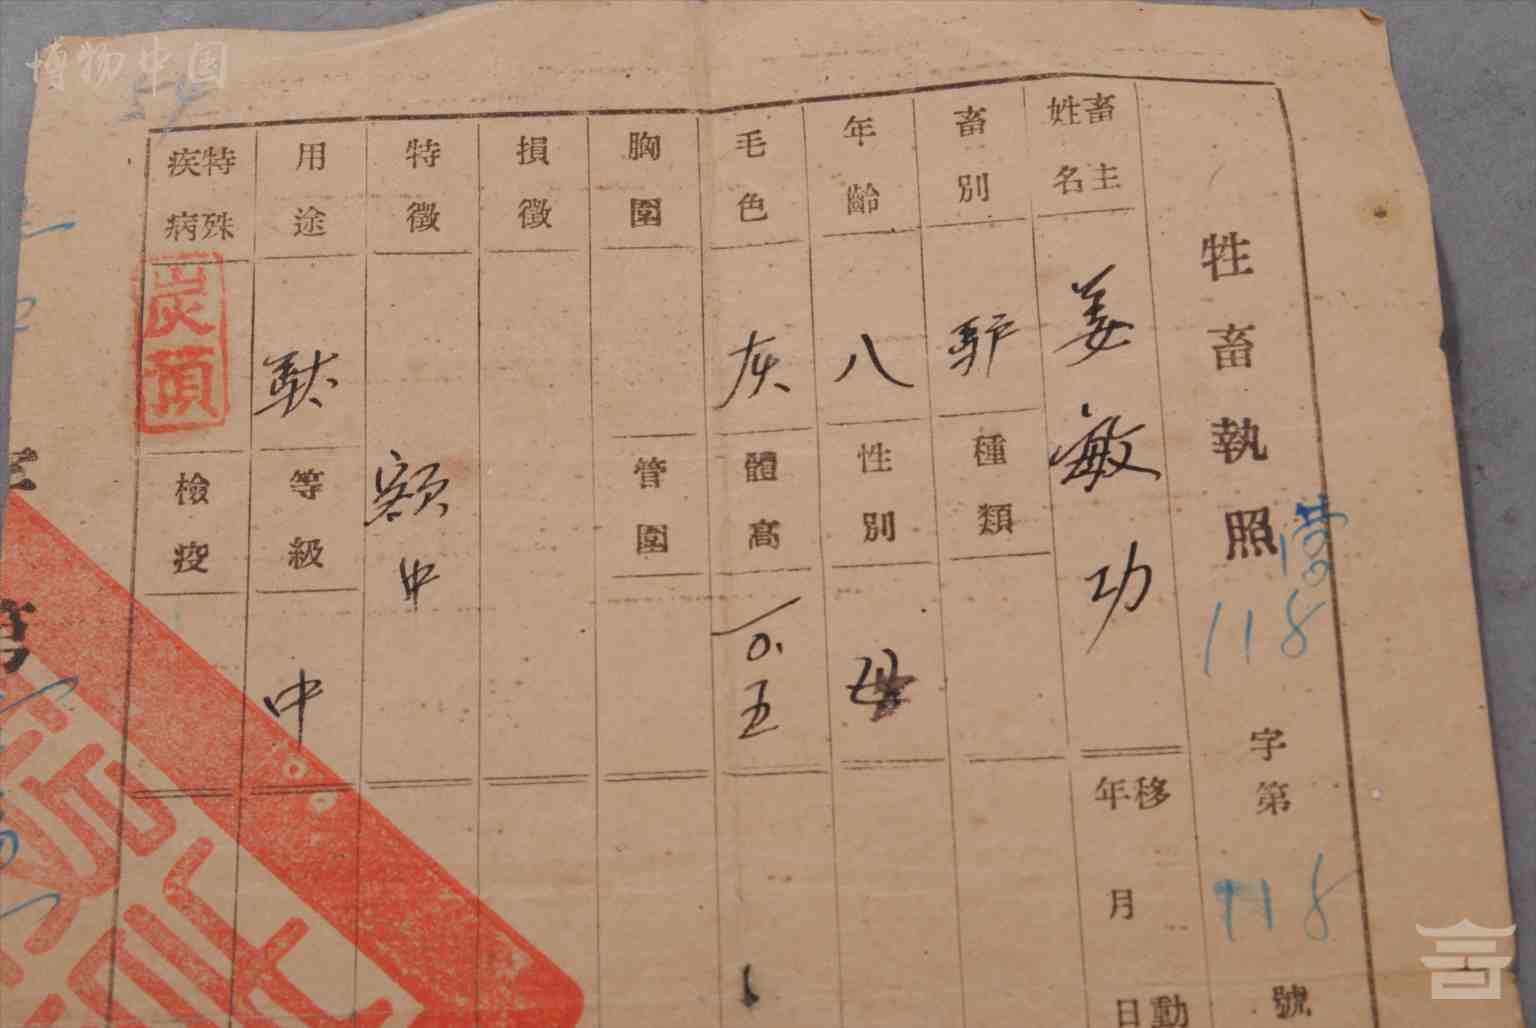 博物中国
54
牲畜執照
118
字第
118
號
畜主姓名
姜敏功
移動年月日
畜別
驴
種類
年齡
八
性別
母
毛色
灰
體高
一0.五
胸圍
管圍
損徵
特徵
额中
用途
馱
等級
中
特殊疾病
檢疫
第